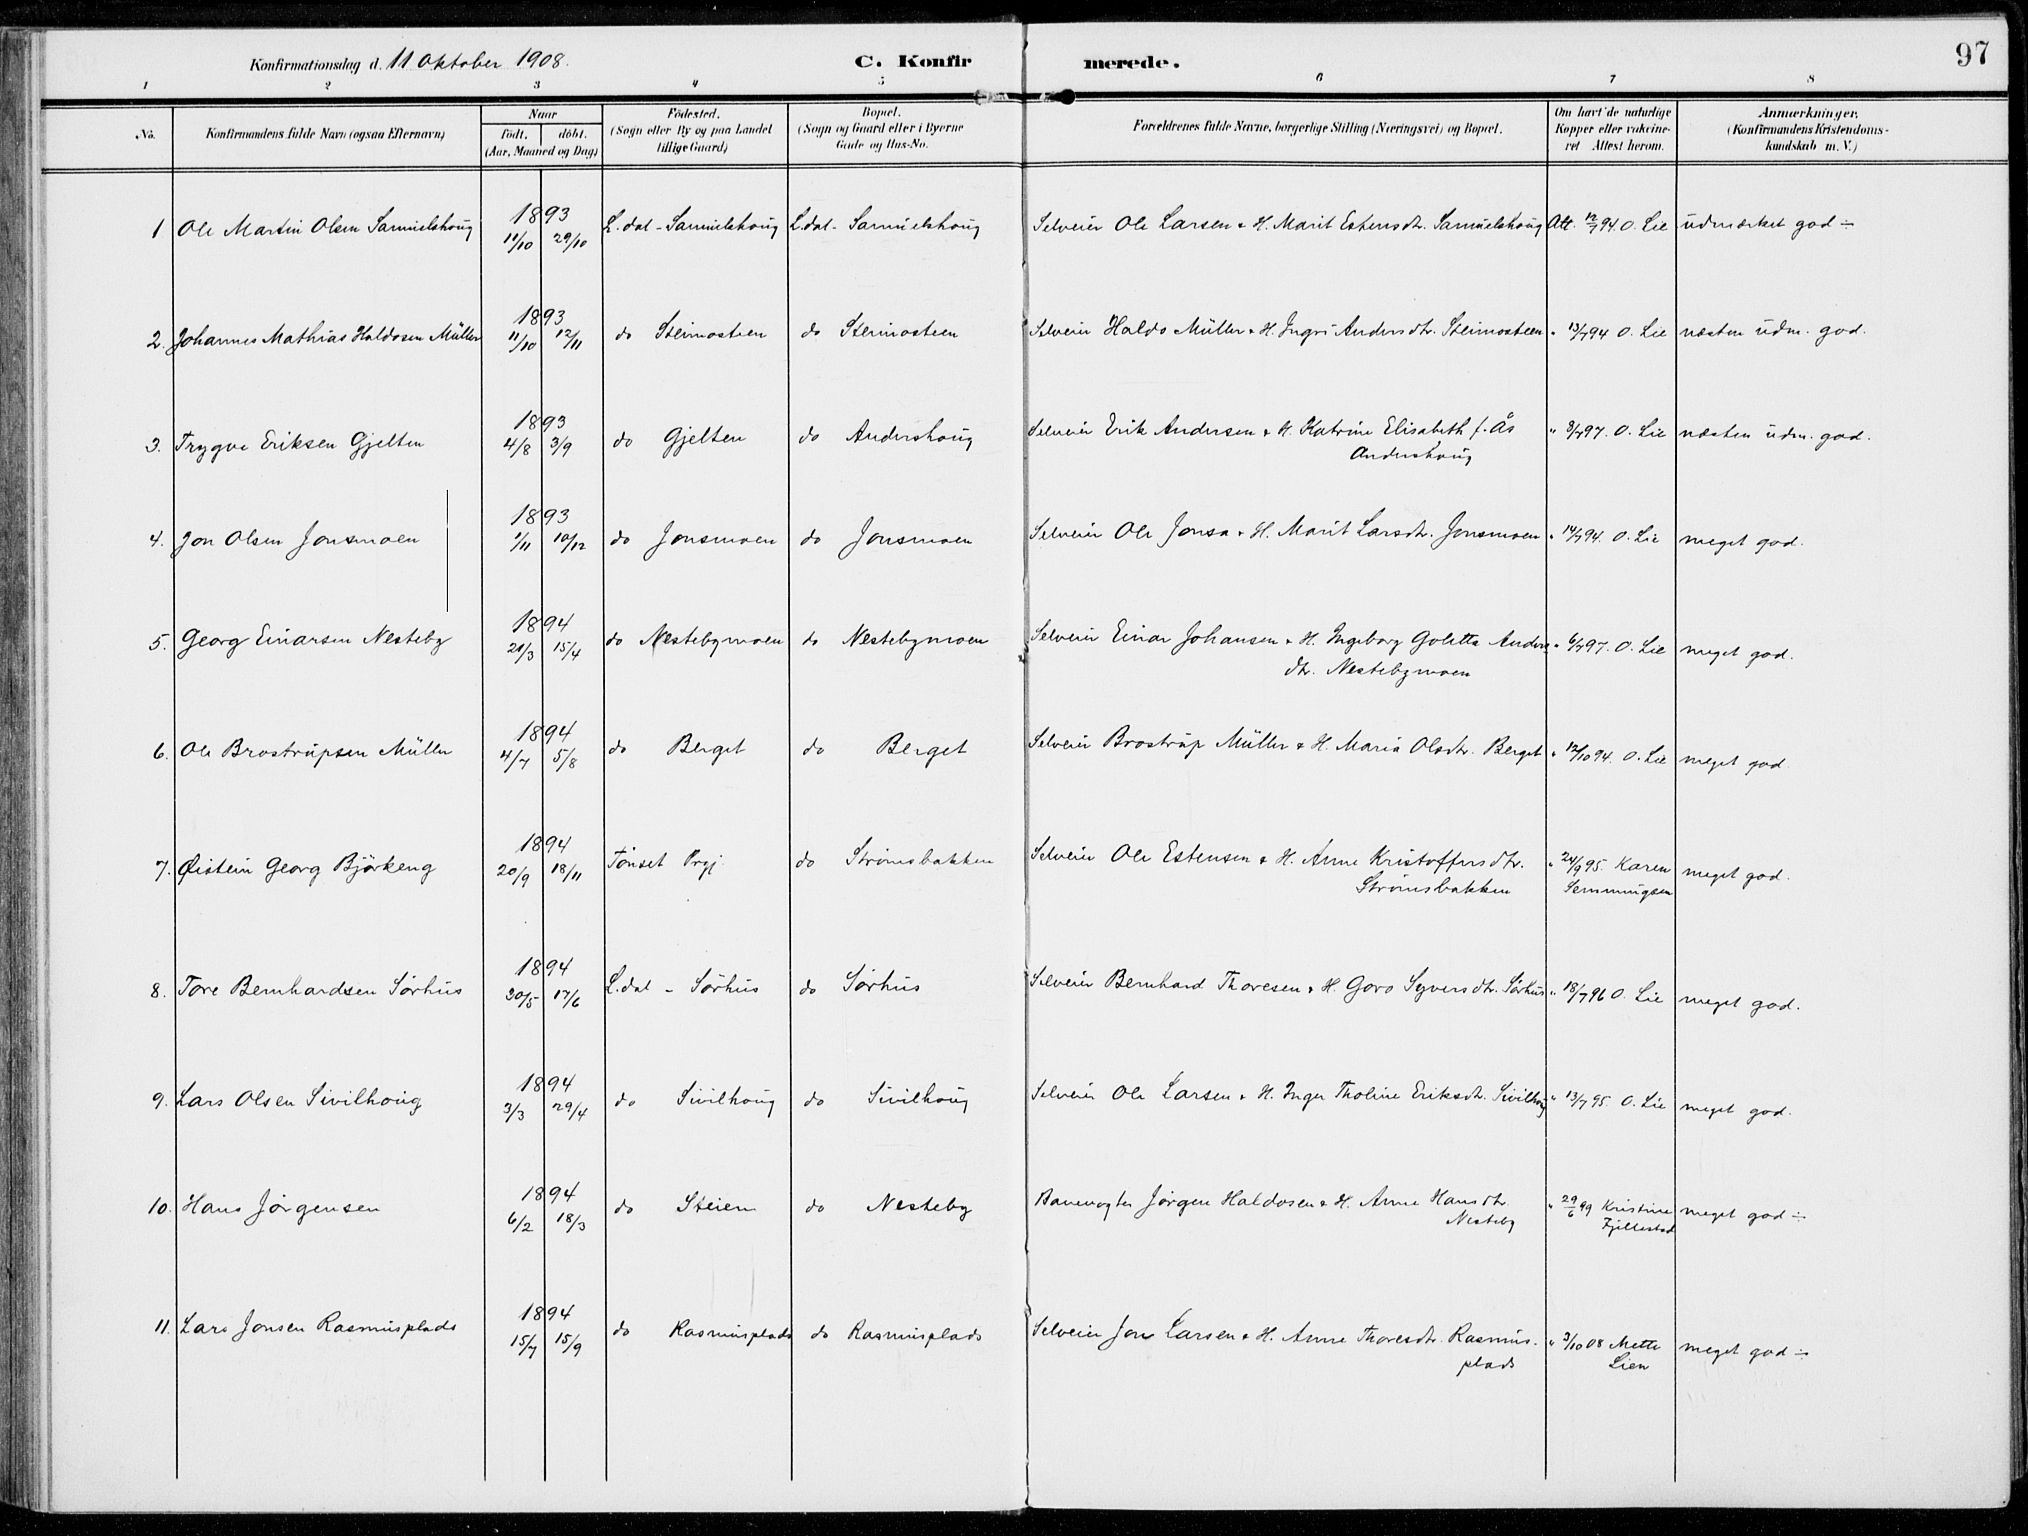 Konfirmationsdag d. 11 Oktober 1908.
C. Konfirmerede.
97
1 2 3 4 5 6 7 8
No.
Konfirmandens fulde Navn (ogsaa Efternavn)
Naar
født. døbt.
(Aar, Maaned og Dag)
Fødested.
(Sogn eller By og paa Landet
tillige Gaard)
Bopæl.
(Sogn og Gaard eller i Byerne
Gade og Hus-No.
Forældrenes fulde Navne, borgerlige Stilling (Næringsvei) og Bopæl.
Om havt de naturlige
Kopper eller vakcine-
ret Attest herom.
Anmærkninger.
(Konfirmandens Kristendoms-
kundskab m. V.)
1 Ole Martin Olsen Samuelshoug 1893 11/10 29/10 L.dal - Samuelshoug L.dal - Samuelshoug Selveier Ole Larsen & H. Marit Estensdtr. Samuelshoug Att. 12/7 94 O. Lie udmærket god ÷
2. Johannes Mathias Haldosen Müller 1893 11/10 12/11 do Steimosteen do Steimosteen Selveier Haldo Müller & H. Ingri Andersdtr. Steimosteen " 13/7 94 O. Lie næsten udm. god.
3. Trygve Eriksen Gjelten 1893 4/8 3/9 do Gjelten do Andershoug Selveier Erik Andersen & H. Katrine Elisabeth f. Ås
Andershoug
" 3/7 97. O. Lie næsten udm. god.
4. Jon Olsen Jonsmoen 1893 1/11 10/12 do Jonsmoen do Jonsmoen Selveier Ole Jonsa & H. Marit Larsdtr. Jonsmoen " 14/7 94. O. Lie meget god.
5. Georg Einarsen Nesteby 1894 21/3 15/4 do Nestebymoen do Nestebymoen Selveier Einar Johansen & H. Ingeborg Goletta Anders-
dtr. Nestebymoen
" 6/7 97. O. Lie meget god.
6. Ole Brostrupsen Müller 1894 4/7 5/8 do Berget do Berget Selveier Brostrup Müller & H. Maria Olsdtr. Berget " 12/10 94. O. Lie meget god
7. Øistein Georg Bjørkeng 1894 20/9 18/11 Tønset Prgj. do Strømsbakken Selveier Ole Estensen & H. Anne Kristoffersdtr.
Strømsbakken
" 24/9 95. Karen
Semmingsen
meget god.
8. Tore Bernhardsen Sørhus 1894 20/5 17/6 L.dal - Sørhus do Sørhus Selveier Bernhard Thoresen & H. Goro Syversdtr. Sørhus " 18/7 96 O. Lie meget god.
9. Lars Olsen Sivilhoug 1894 3/3 29/4 do Sivilhoug do Sivilhoug Selveier Ole Larsen & H. Inger Tholine Eriksdtr. Sivilhoug " 13/7 95. O. Lie meget god.
10. Hans Jørgensen 1894 6/2 18/3 do Steien do Nesteby Banevogter Jørgen Haldosen & H. Anne Hansdtr.
Nesteby
" 29/6 99 Kristine
Fjellestad
meget god ÷
11. Lars Jonsen Rasmusplads 1894 15/7 15/9 do Rasmusplads do Rasmusplads Selveier Jon Larsen & H. Anne Thoresdtr. Rasmus-
plads
" 3/10 08 Mette
Lien
meget god ÷